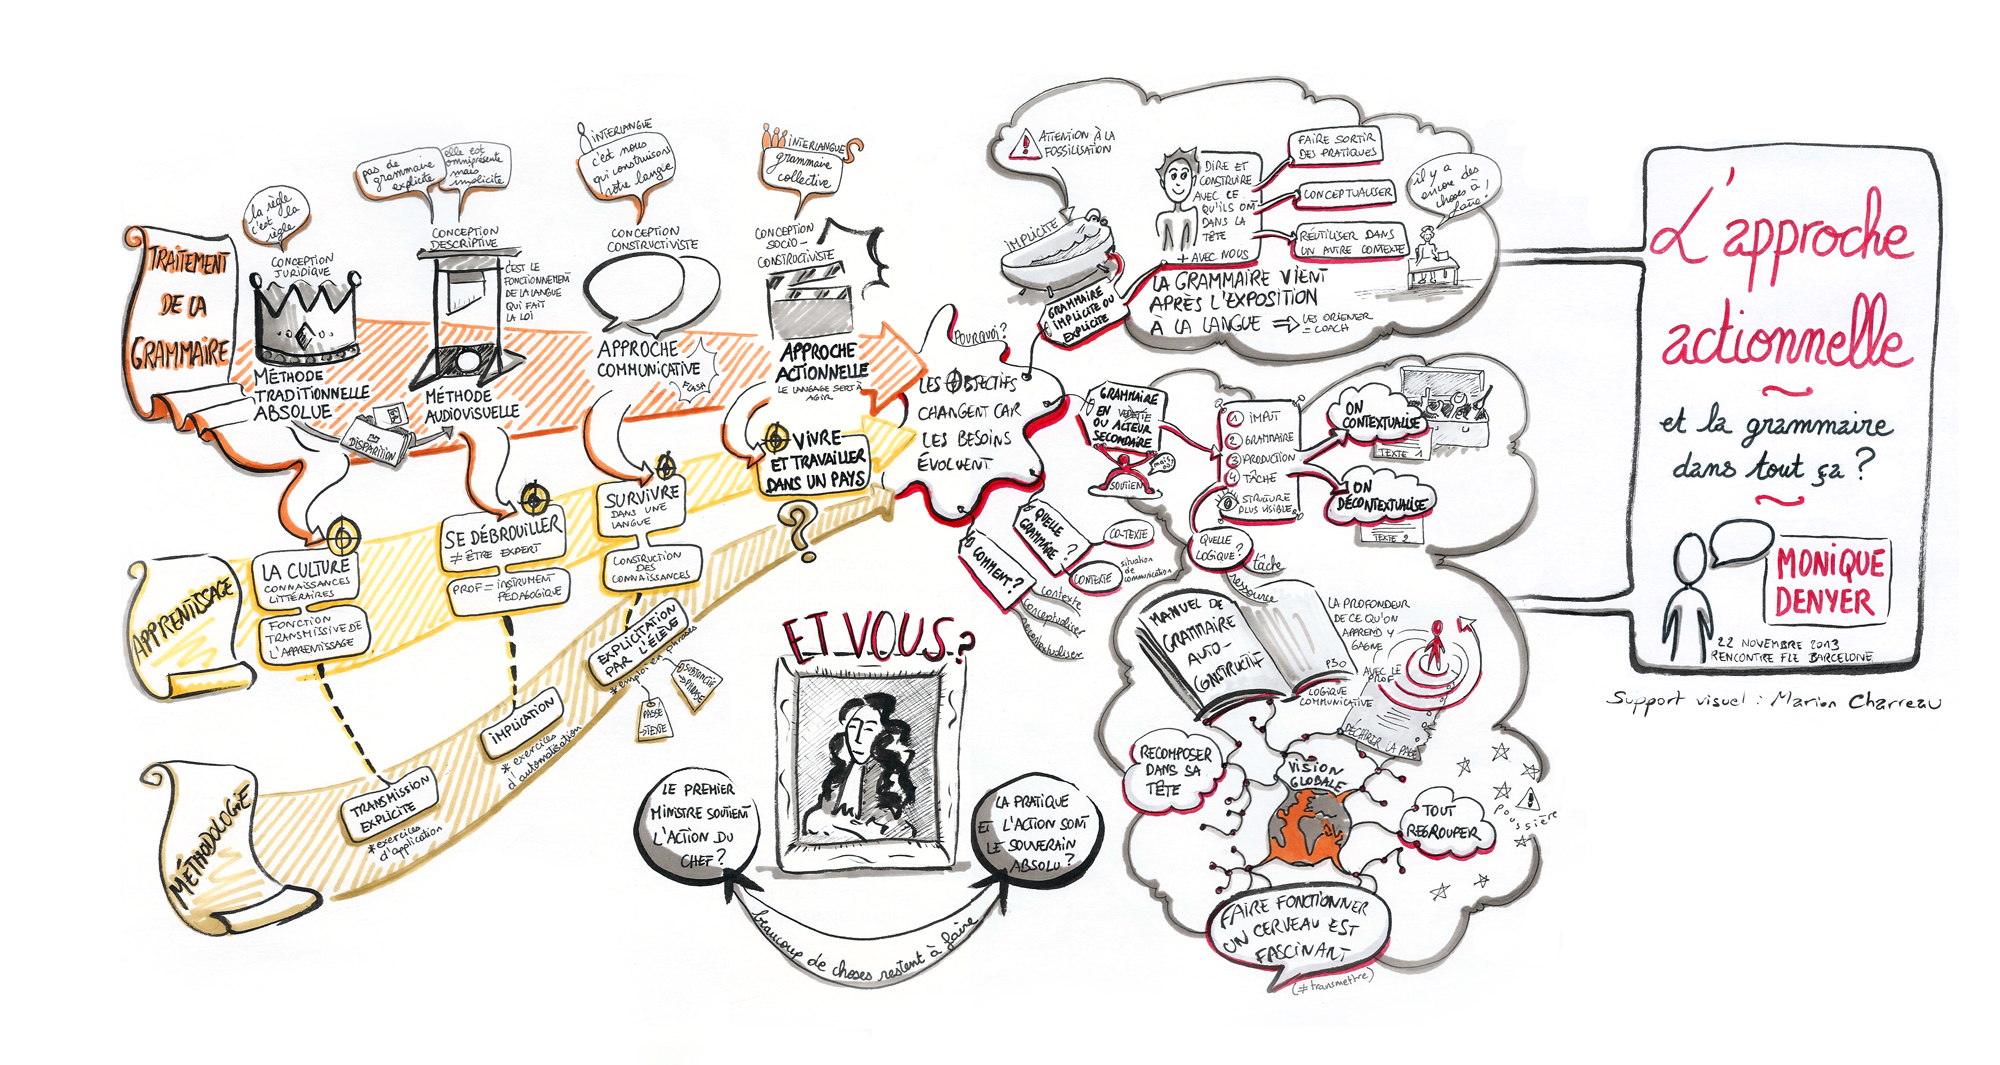 TRAITEMENT
DE LA
GRAMMAIRE
la règle
c'est la
règle
CONCEPTION
JURIDIQUE
MÉTHODE
TRADITIONNELLE
ABSOLUE
DISPARITION
de
pas grammaire
explicite
elle est
omniprésente
mais
implicite
CONCEPTION
DESCRIPTIVE
C'EST LE
FONCTIONNEMENT
DE LA LANGUE
QUI FAIT
LA LOI
MÉTHODE
AUDIOVISUELLE
INTERLANGUE
c'est nous
qui construisons
notre langue
CONCEPTION
CONSTRUCTIVISTE
APPROCHE
COMMUNICATIVE
FLASH
INTERLANGUES
grammaire
collective
CONCEPTION
SOCIO-
CONSTRUCTIVISTE
APPROCHE
ACTIONNELLE
LE LANGAGE SERT À
AGIR
APPRENTISSAGE
LA CULTURE
CONNAISSANCES
LITTÉRAIRES
FONCTION
TRANSMISSIVE DE
L'APPRENTISSAGE
SE DÉBROUILLER
≠ ÊTRE EXPERT
PROF = INSTRUMENT
PÉDAGOGIQUE
SURVIVRE
DANS UNE
LANGUE
CONSTRUCTION
DES
CONNAISSANCES
VIVRE
ET TRAVAILLER
DANS UN PAYS
?
MÉTHODOLOGIE
TRANSMISSION
EXPLICITE
*exercices
d'application
IMPLICATION
*exercices
d'automatisation
EXPLICITATION
PAR L'ÉLÈVE
*emploi en phrases
PASSÉ
→TEXTE
SUBJONCTIF
→PHRASE
POURQUOI?
LES OBJECTIFS
CHANGENT CAR
LES BESOINS
ÉVOLUENT
ATTENTION À LA
FOSSILISATION
IMPLICITE
GRAMMAIRE
IMPLICITE OU
EXPLICITE
DIRE ET
CONSTRUIRE
AVEC CE
QU'ILS ONT
DANS LA
TÊTE
+ AVEC NOUS
FAIRE SORTIR
DES PRATIQUES
CONCEPTUALISER
RÉUTILISER DANS
UN AUTRE CONTEXTE
il y a
encore des
choses à
faire!
LA GRAMMAIRE VIENT
APRÈS L'EXPOSITION
À LA LANGUE ⇒ LES ORIENTER
= COACH
GRAMMAIRE
EN VEDETTE
OU ACTEUR
SECONDAIRE
mais où?
SOUTIEN
1 INPUT
2 GRAMMAIRE
3 PRODUCTION
4 TÂCHE
STRUCTURE
PLUS VISIBLE
ON
CONTEXTUALISE
TEXTE 1
ON
DÉCONTEXTUALISE
TEXTE 2
QUELLE
LOGIQUE?
tâche
ressource
COMMENT?
QUELLE
GRAMMAIRE?
CO-TEXTE
CONTEXTE
situation
de
communication
contexte
conceptualiser
recontextualiser
MANUEL DE
GRAMMAIRE
AUTO-
CONSTRUCTIVE
P30
LOGIQUE
COMMUNICATIVE
LA PROFONDEUR
DE CE QU'ON
APPREND Y
GAGNE
AVEC LE
PROF
DÉCHIRER LA PAGE
RECOMPOSER
DANS SA
TÊTE
VISION
GLOBALE
TOUT
REGROUPER
poussière
FAIRE FONCTIONNER
UN CERVEAU EST
FASCINANT
(≠transmettre)
ET VOUS?
LE PREMIER
MINISTRE SOUTIENT
L'ACTION DU
CHEF?
LA PRATIQUE
ET L'ACTION SONT
LE SOUVERAIN
ABSOLU?
beaucoup de choses restent à faire
L'approche
actionnelle
~
et la grammaire
dans tout ça?
~
MONIQUE
DENYER
22 NOVEMBRE 2013
RENCONTRE FLE BARCELONE
Support visuel : Marion Charreau